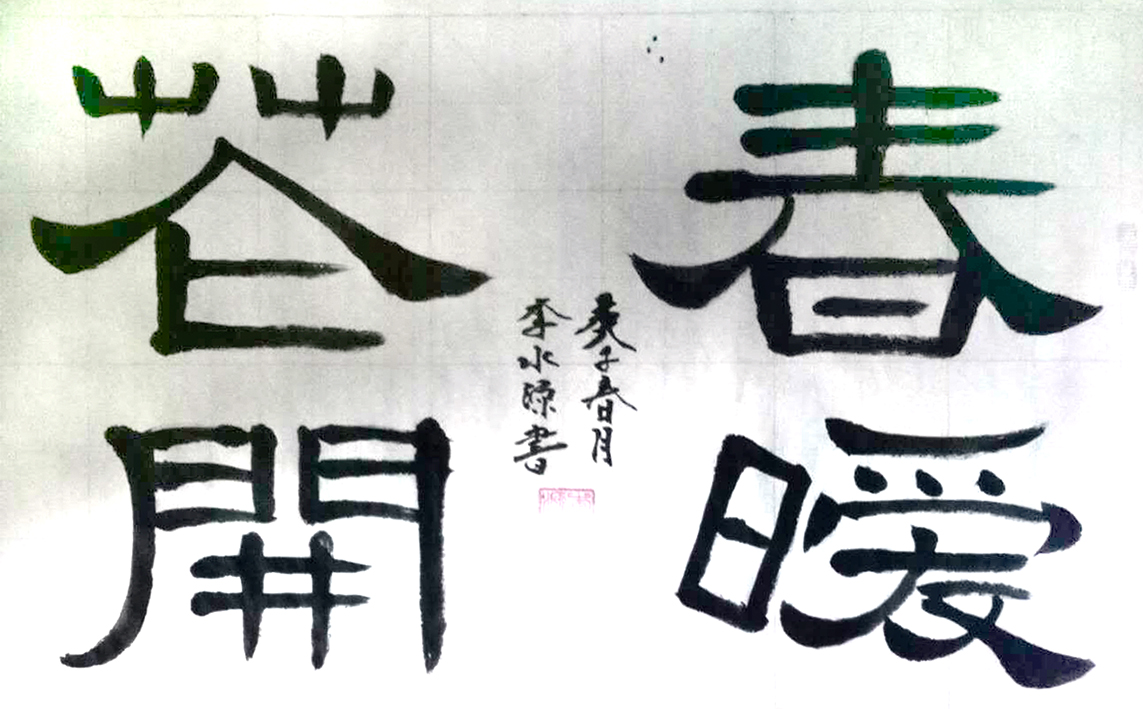 春暖
花開
庚子春月
李水源書